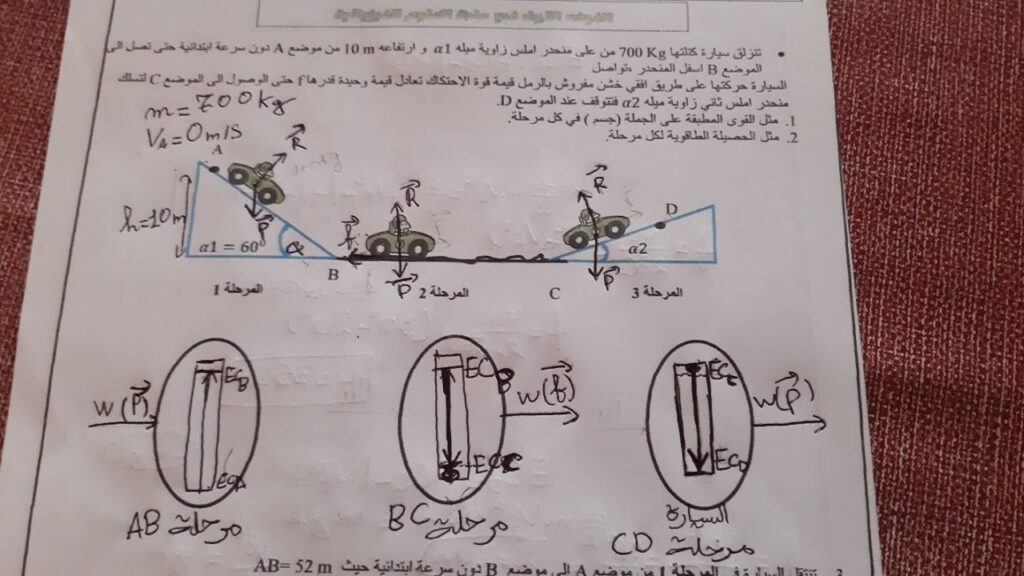 الفرض الأول في مادة العلوم الفيزيائية
• تنزلق سيارة كتلتها 700 Kg من على منحدر املس زاوية ميله α1 و ارتفاعه 10 m من موضع A دون سرعة ابتدائية حتى تصل الى
الموضع B اسفل المنحدر ،تواصل
السيارة حركتها على طريق افقي خشن مفروش بالرمل قيمة قوة الاحتكاك تعادل قيمة وحيدة قدرها f حتى الوصول الى الموضع C لتسلك
منحدر املس ثاني زاوية ميله α2 فتتوقف عند الموضع D.
1. مثل القوى المطبقة على الجملة (جسم) في كل مرحلة.
2. مثل الحصيلة الطاقوية لكل مرحلة.
m = 700 kg
VA = 0 m/s
A
R
P
h = 10 m
α1 = 60°
α
B
المرحلة 1
f
R
P
المرحلة 2
C
R
P
D
α2
المرحلة 3
W(P)
ECB
ECA
مرحلة AB
ECB
W(f)
ECC
مرحلة BC
ECC
W(P)
ECD
السيارة
مرحلة CD
3. تنتقل السيارة في المرحلة 1 من موضع A الى موضع B دون سرعة ابتدائية حيث AB= 52 m